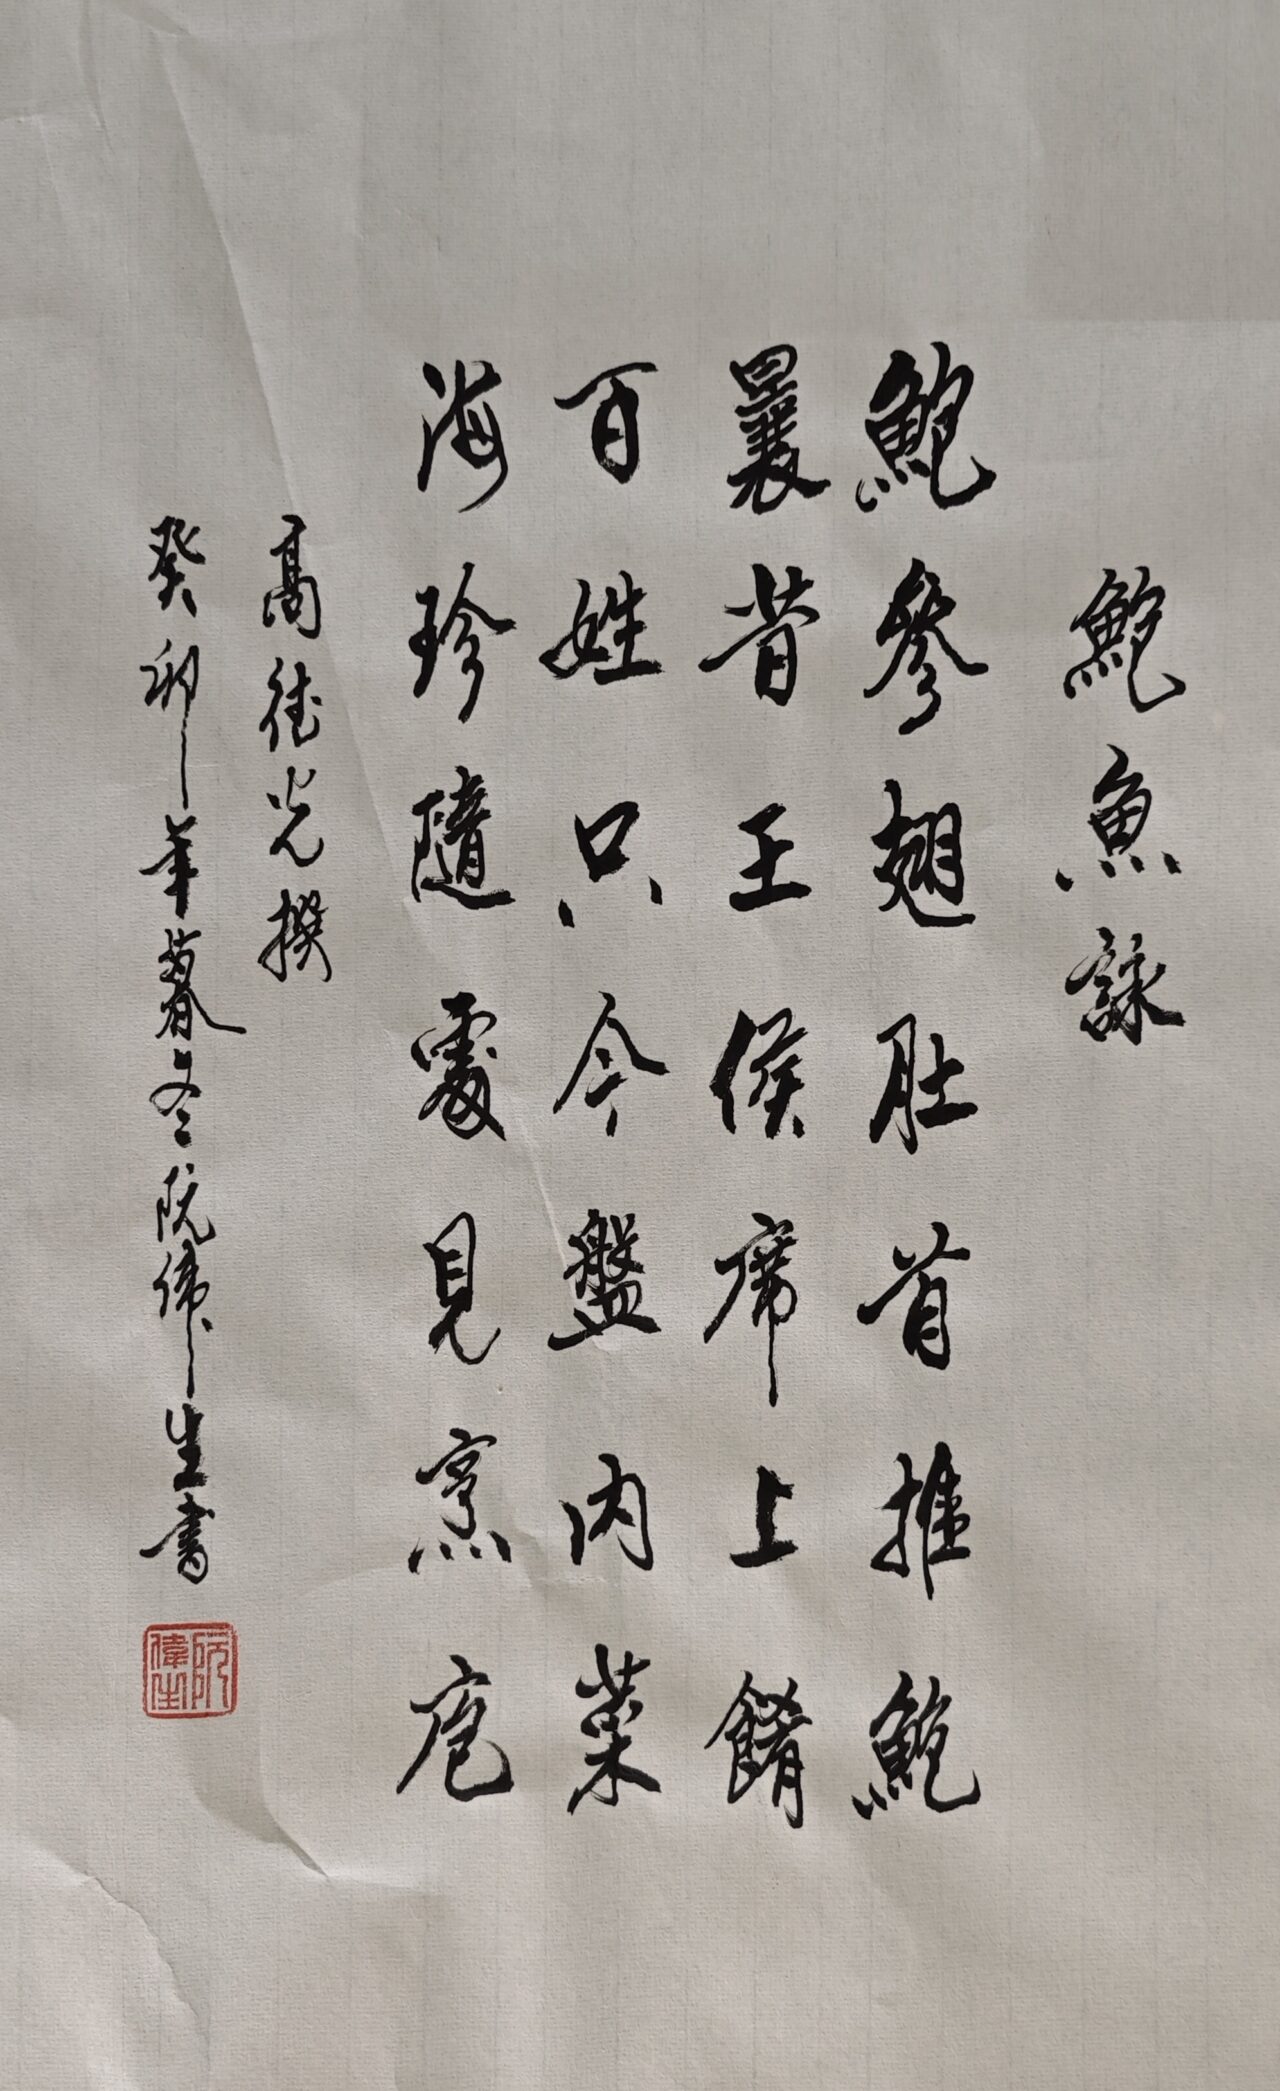 鮑魚詠
鮑參翅肚首推鮑
曩昔王侯席上餚
百姓只今盤內菜
海珍隨處見烹庖
高從光撰
癸卯年暮冬阮偉生書
阮偉生